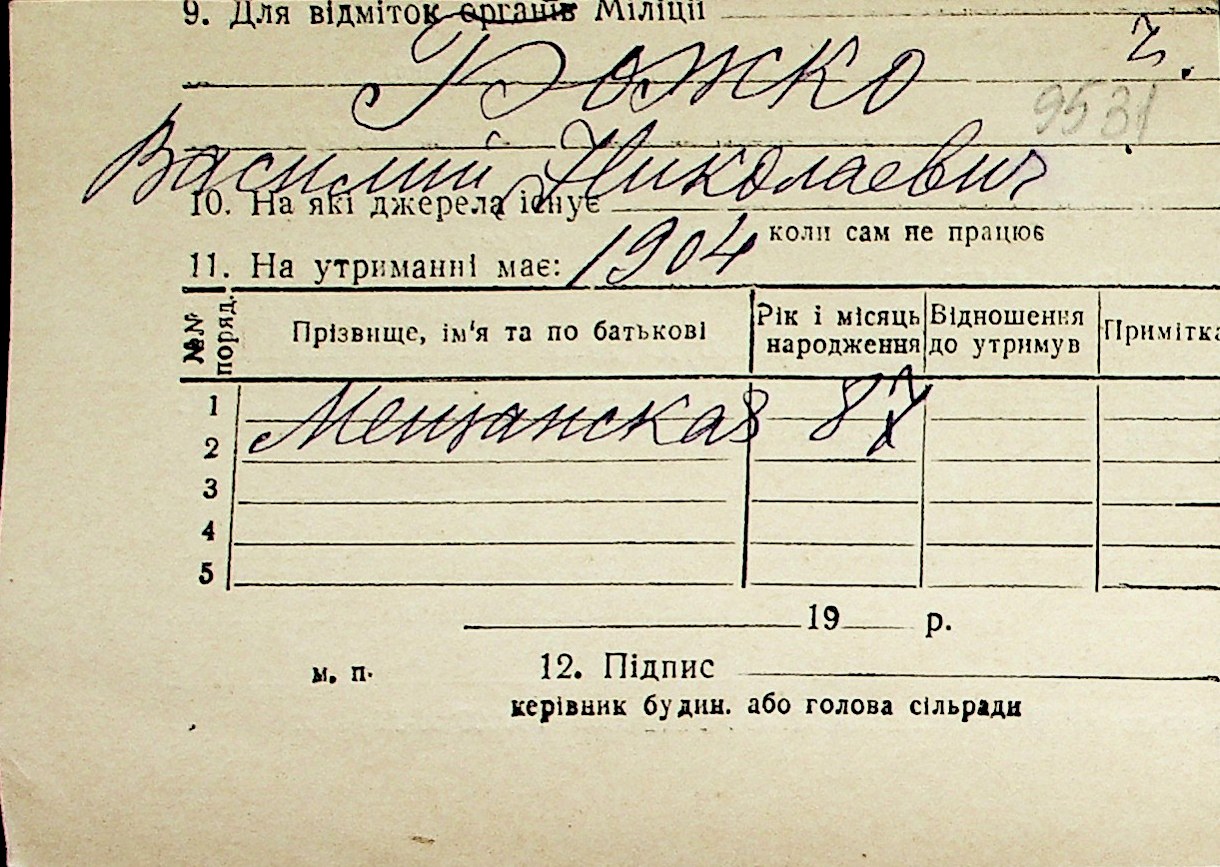 9. Для відміток органів Міліції
Божко ч.
9531
Василий Николаевич
10. На які джерела існує
коли сам не працює
11. На утриманні має: 1904
№№ поряд. Прізвище, ім'я та по батькові Рік і місяць народження Відношення до утримув Примітка
1
Мещанская 87
2
3
4
5
19 р.
м. п. 12. Підпис
керівник будин. або голова сільради